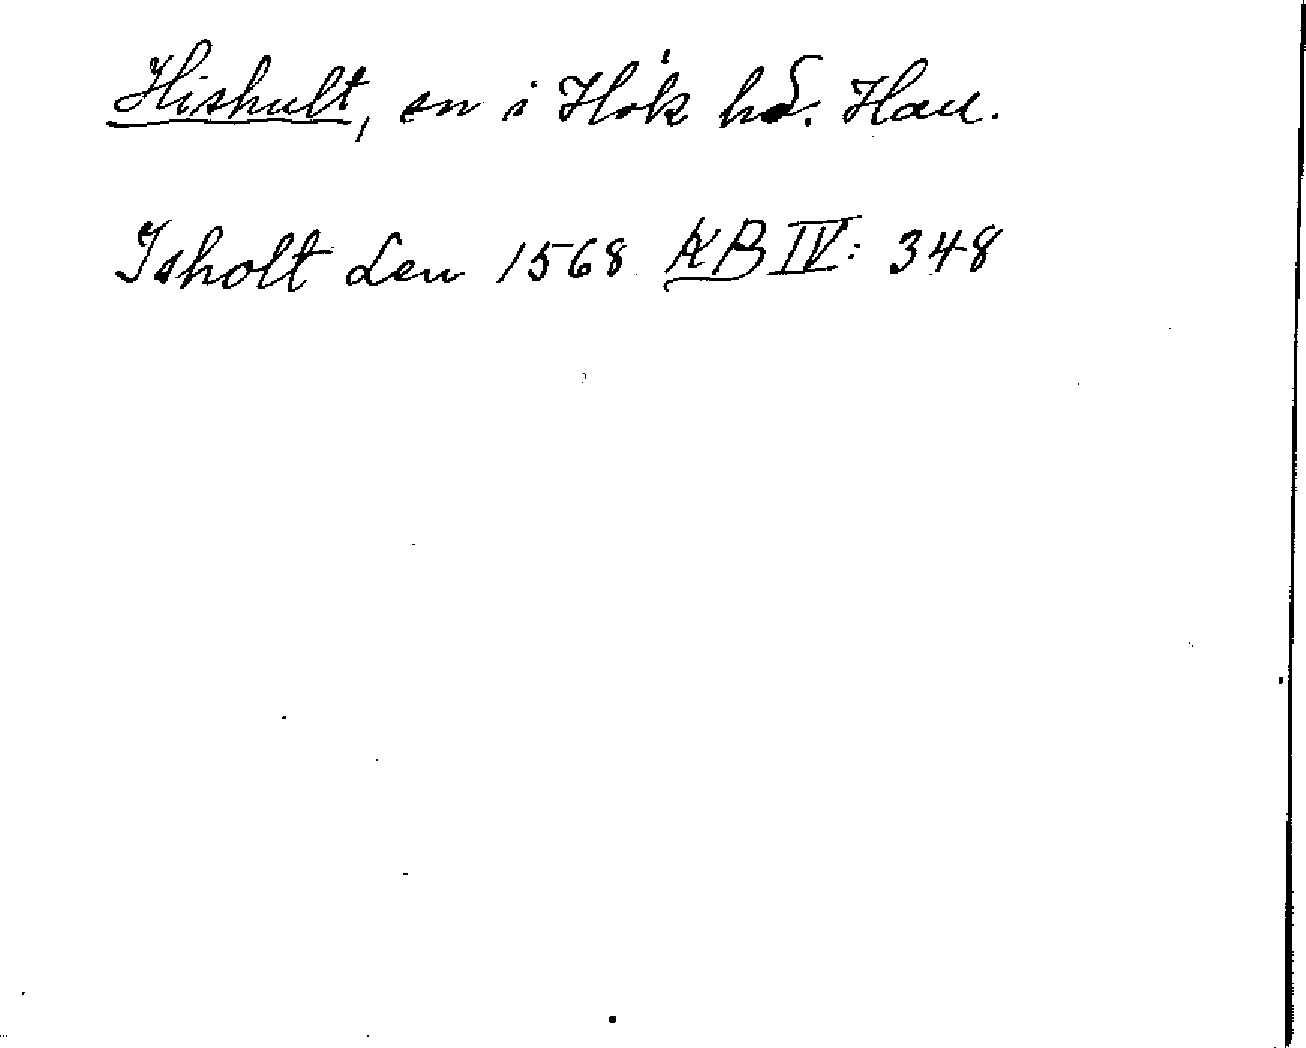 Hishult, sn i Hök hd. Hall.
Isholt Len 1568 KB IV: 348